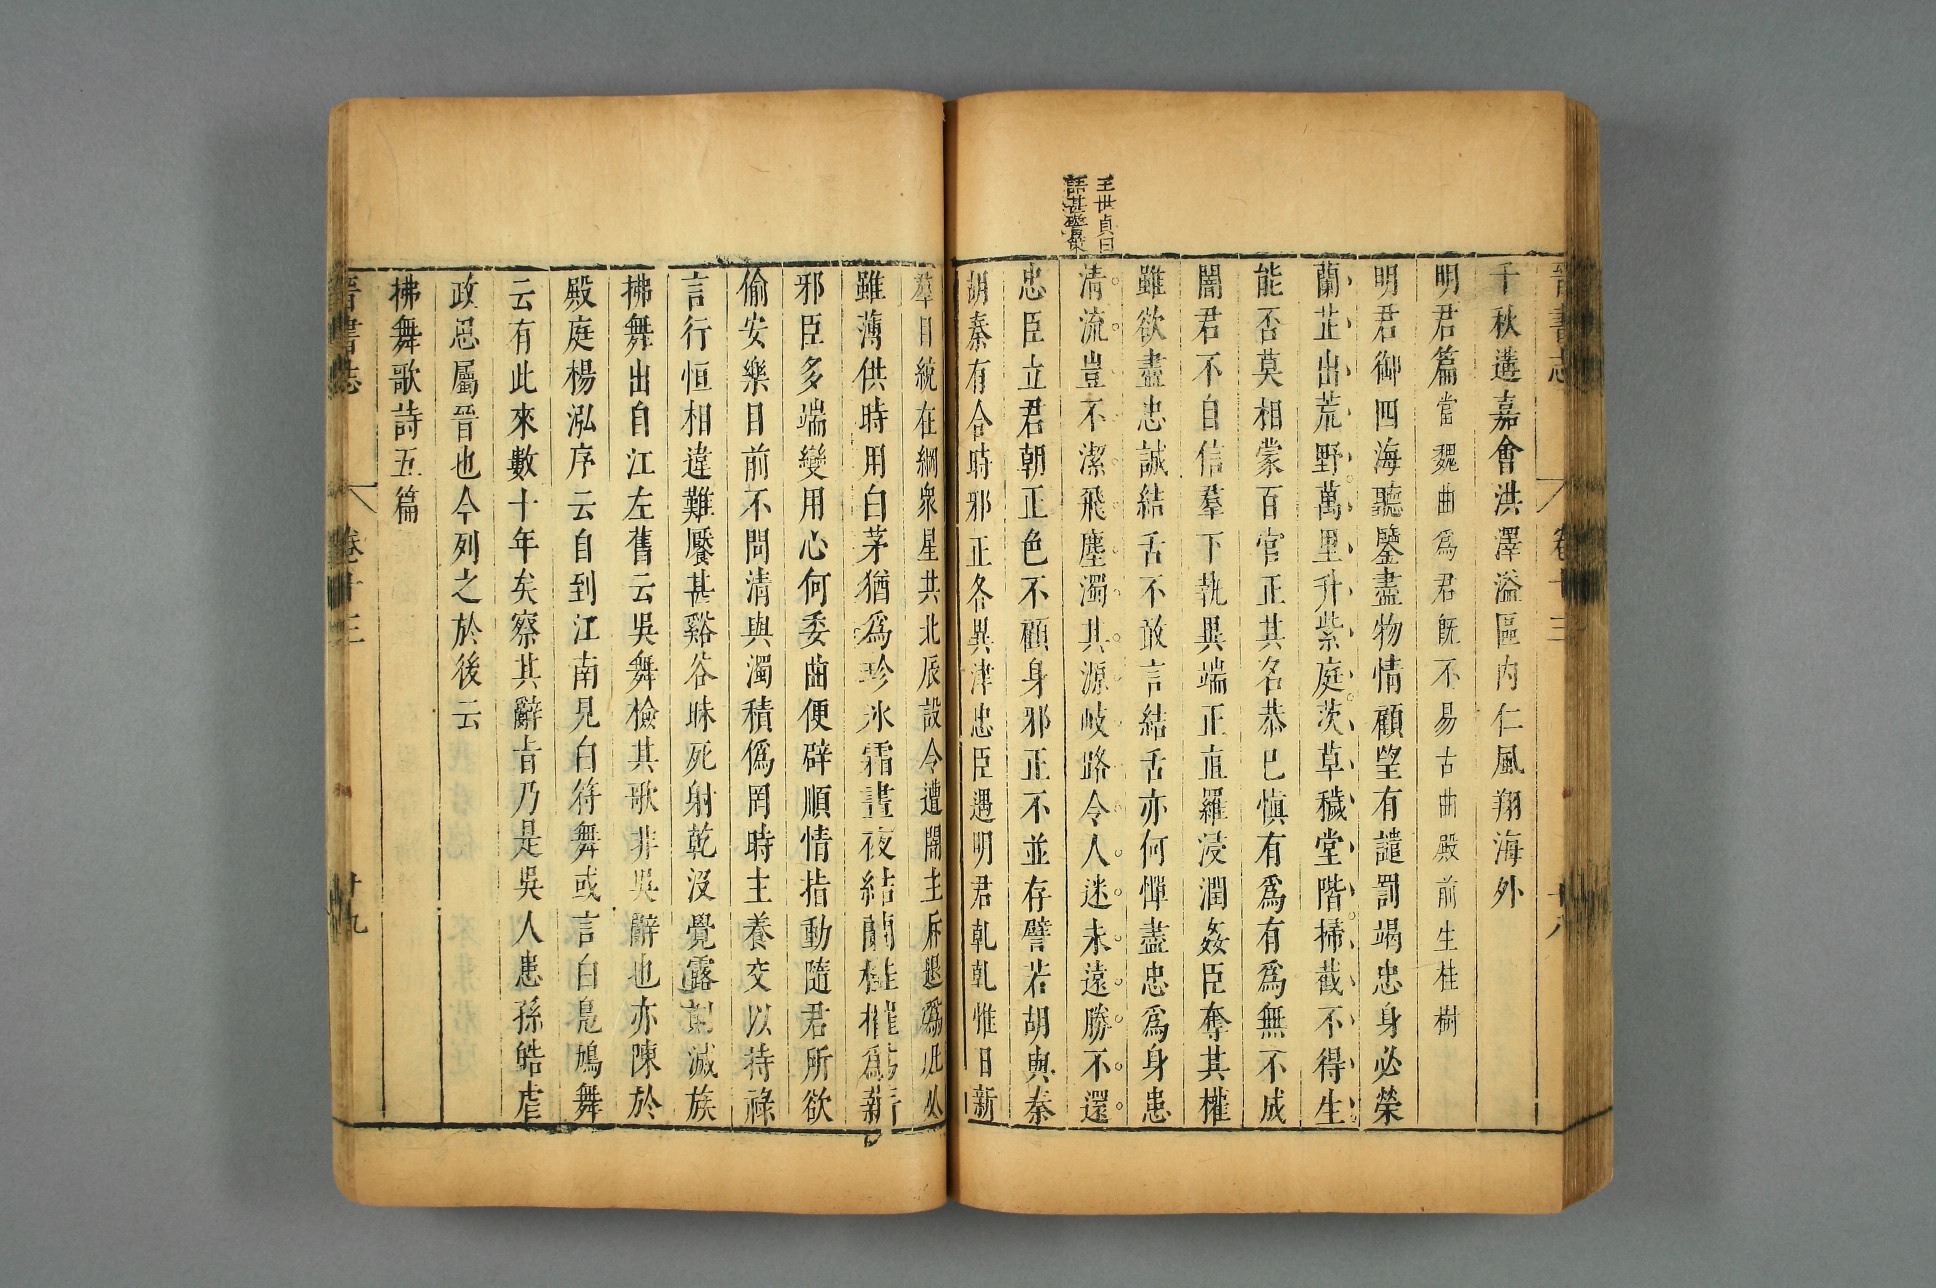 晉書志 卷十三 十八
王世貞曰
語甚警策
千秋遘嘉會洪澤溢區內仁風翔海外
明君篇當魏曲爲君旣不易古曲殿前生桂樹
明君御四海聽鑒盡物情顧望有譴罰竭忠身必榮
蘭茝出荒野萬里升紫庭茨草穢堂階掃截不得生
能否莫相蒙百官正其名恭已愼有爲有爲無不成
闇君不自信羣下執異端正直羅浸潤姦臣奪其權
雖欲盡忠誠結舌不敢言結舌亦何憚盡忠爲身患
清流豈不潔飛塵濁其源岐路令人迷未遠勝不還
忠臣立君朝正色不顧身邪正不並存譬若胡與秦
胡秦有合時邪正各異津忠臣遇明君乹乹惟日新
羣目統在綱衆星共北辰設令遭闇主斥退爲凡人
雖薄供時用白茅猶爲珍氷霜晝夜結蘭桂摧爲薪
邪臣多端變用心何委曲便辟順情指動隨君所欲
偷安樂目前不問清與濁積僞罔時主養交以持祿
言行恒相違難饜甚谿谷昧死射乾沒覺露則滅族
拂舞出自江左舊云吳舞檢其歌非吳辭也亦陳於
殿庭楊泓序云自到江南見白符舞或言白鳧鳩舞
云有此來數十年矣察其辭旨乃是吳人患孫皓虐
政思屬晉也今列之於後云
拂舞歌詩五篇
晉書志 卷十三 十九